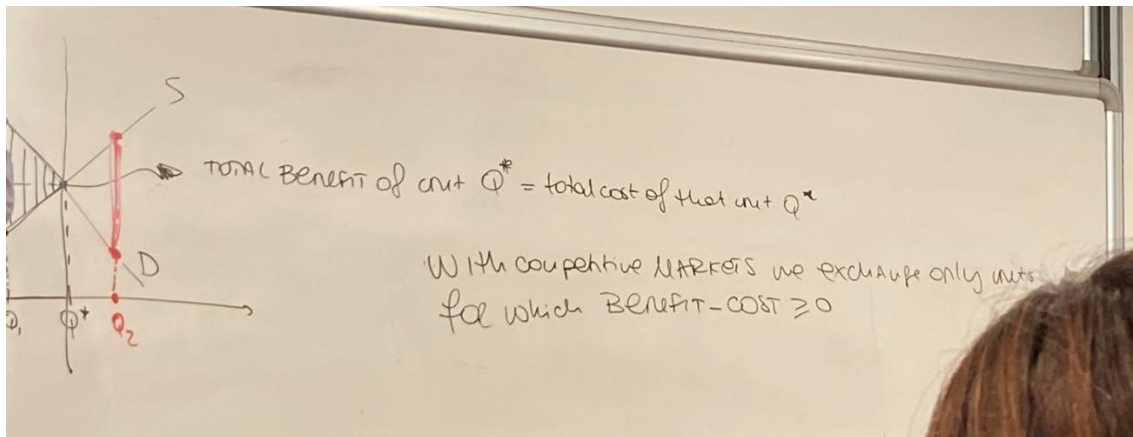 S
TOTAL BENEFIT of unit Q* = total cost of that unit Q*
D
With competitive MARKETS we exchange only units
for which BENEFIT-COST ≥0
Q₁ Q* Q₂